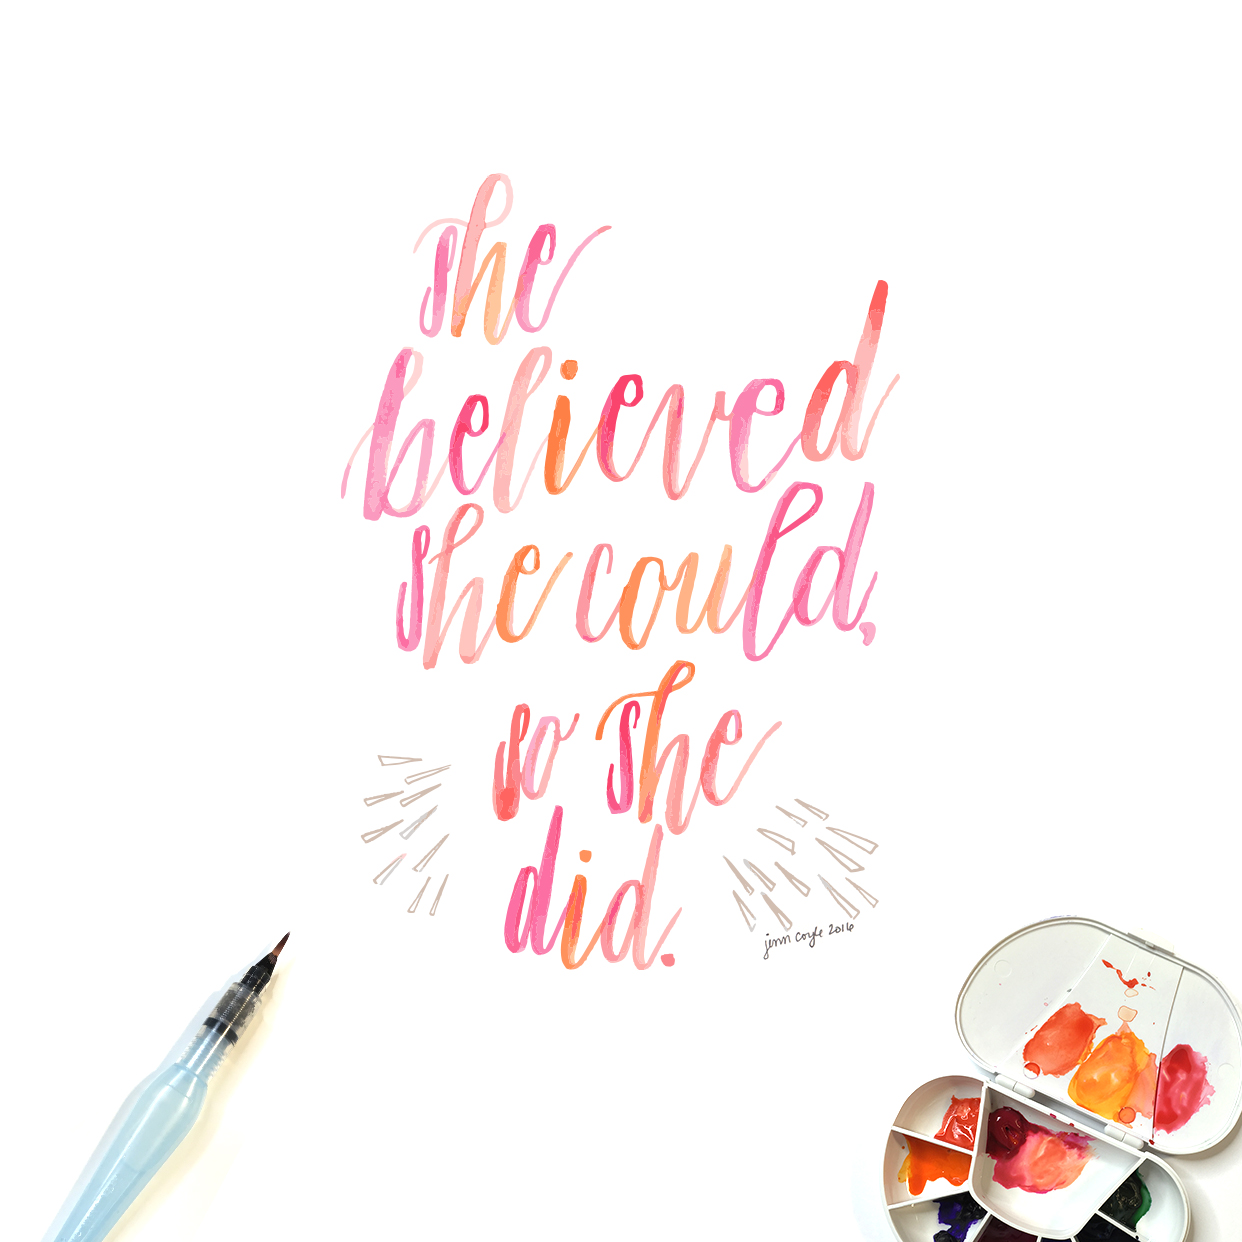 she
believed
she could,
so she
did.
jenn coyle 2016